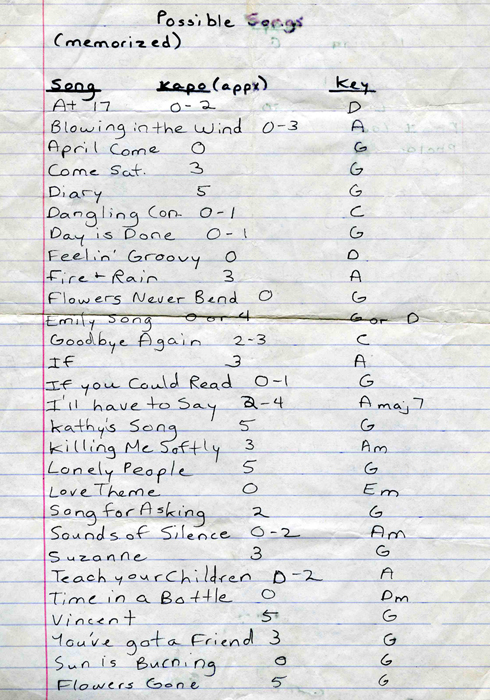 Possible Songs
(memorized)
Song kapo (appx) Key
At 17 0-2 D
Blowing in the Wind 0-3 A
April Come 0 G
Come Sat. 3 G
Diary 5 G
Dangling Con. 0-1 C
Day is Done 0-1 G
Feelin' Groovy 0 D
Fire + Rain 3 A
Flowers Never Bend 0 G
Emily Song 0 or 4 G or D
Goodbye Again 2-3 C
If 3 A
If you Could Read 0-1 G
I'll have to Say 2-4 A maj7
Kathy's Song 5 G
Killing Me Softly 3 Am
Lonely People 5 G
Love Theme 0 Em
Song for Asking 2 G
Sounds of Silence 0-2 Am
Suzanne 3 G
Teach your Children 0-2 A
Time in a Bottle 0 Dm
Vincent 5 G
You've got a Friend 3 G
Sun is Burning 0 G
Flowers Gone 5 G